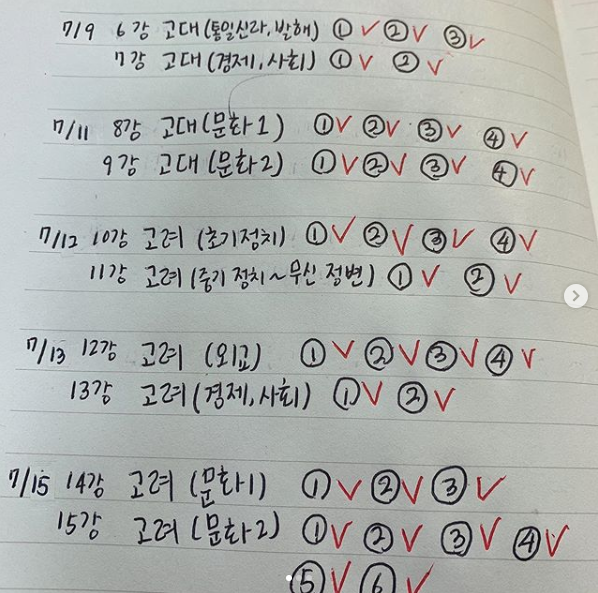 7/9 6강 고대(통일신라,발해) ①✓②✓ ③✓
7강 고대(경제,사회) ①✓ ②✓
7/11 8강 고대(문화1) ①✓②✓ ③✓ ④✓
9강 고대(문화2) ①✓②✓ ③✓ ④✓
7/12 10강 고려(초기정치) ①✓②✓③✓ ④✓
11강 고려(중기정치~무신정변) ①✓ ②✓
7/13 12강 고려(외교) ①✓②✓③✓④✓
13강 고려(경제,사회) ①✓ ②✓
7/15 14강 고려(문화1) ①✓②✓③✓
15강 고려(문화2) ①✓②✓③✓④✓
⑤✓⑥✓